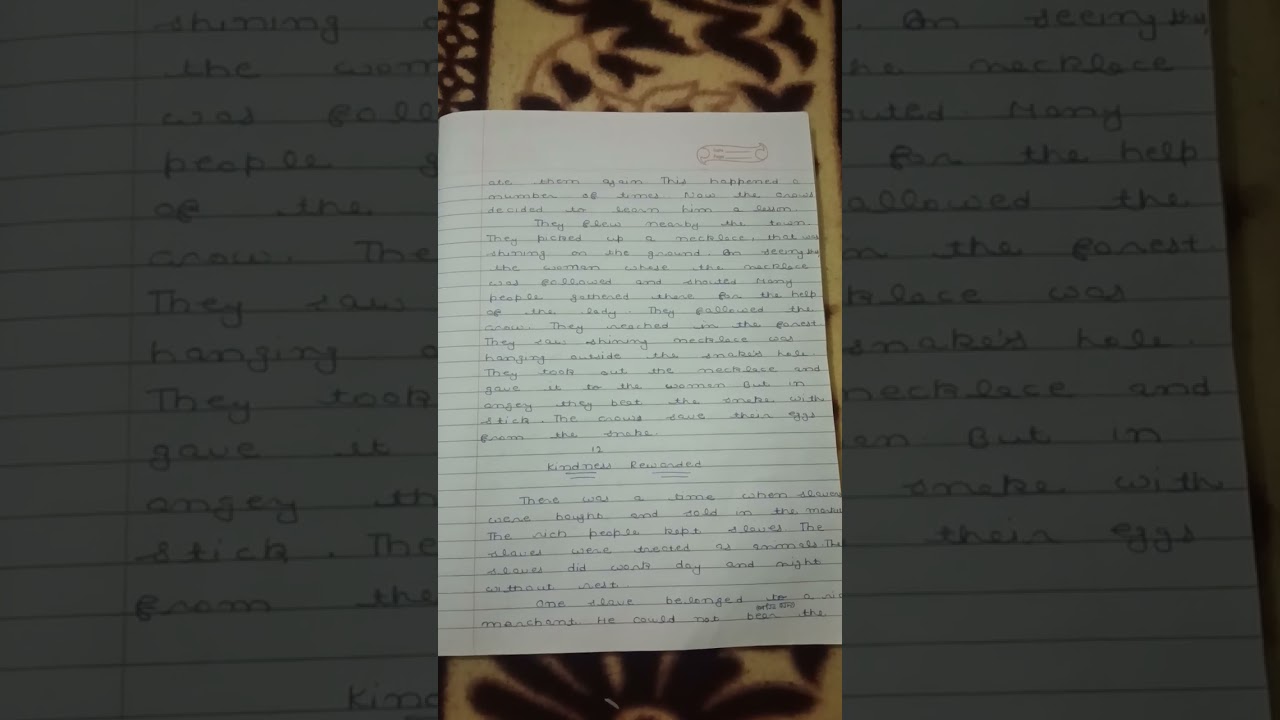 ate them again This happened a
number of times. Now the crows
decided to learn him a lesson.
They flew nearby the town.
They picked up a necklace, that was
shining on the ground. On seeing
the woman whose the necklace
was followed and shouted Many
people gathered there for the help
of the lady. They followed the
crow. They reached in the forest
They saw shining necklace was
hanging outside the snake's hole.
They took out the necklace and
gave it to the women But in
angey they beat the snake with
stick. The crows save their eggs
from the snake.
12
Kindness Rewarded
There was a time when
were bought and sold in the
The rich people kept slaves The
slaves were treated as animals The
slaves did work day and night
without rest.
One slave belonged to a
merchant. He could not bear the